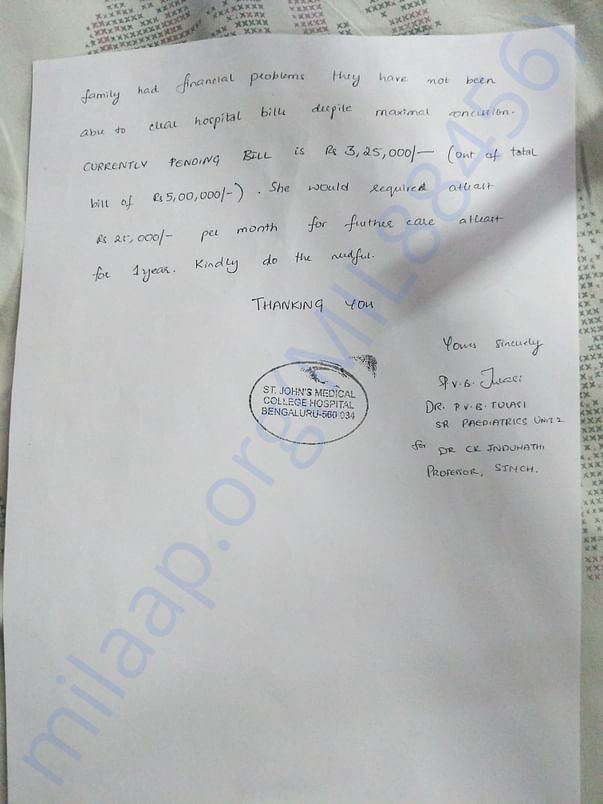 family had financial problems they have not been
able to clear hospital bills despite maximal concession.
CURRENTLY PENDING BILL is Rs 3,25,000/- (out of total
bill of Rs 5,00,000/-). She would required atleast
Rs 25,000/- per month for further care atleast
for 1 year. Kindly do the needful.
THANKING YOU
Yours sincerely
P.V.B. Tulasi
DR. P.V.B. TULASI
SR PAEDIATRICS UNIT 2
for DR CK INDUMATHI
PROFESSOR, SJMCH.
ST. JOHN'S MEDICAL
COLLEGE HOSPITAL
BENGALURU-560 034
milaap.org(MIL88456)